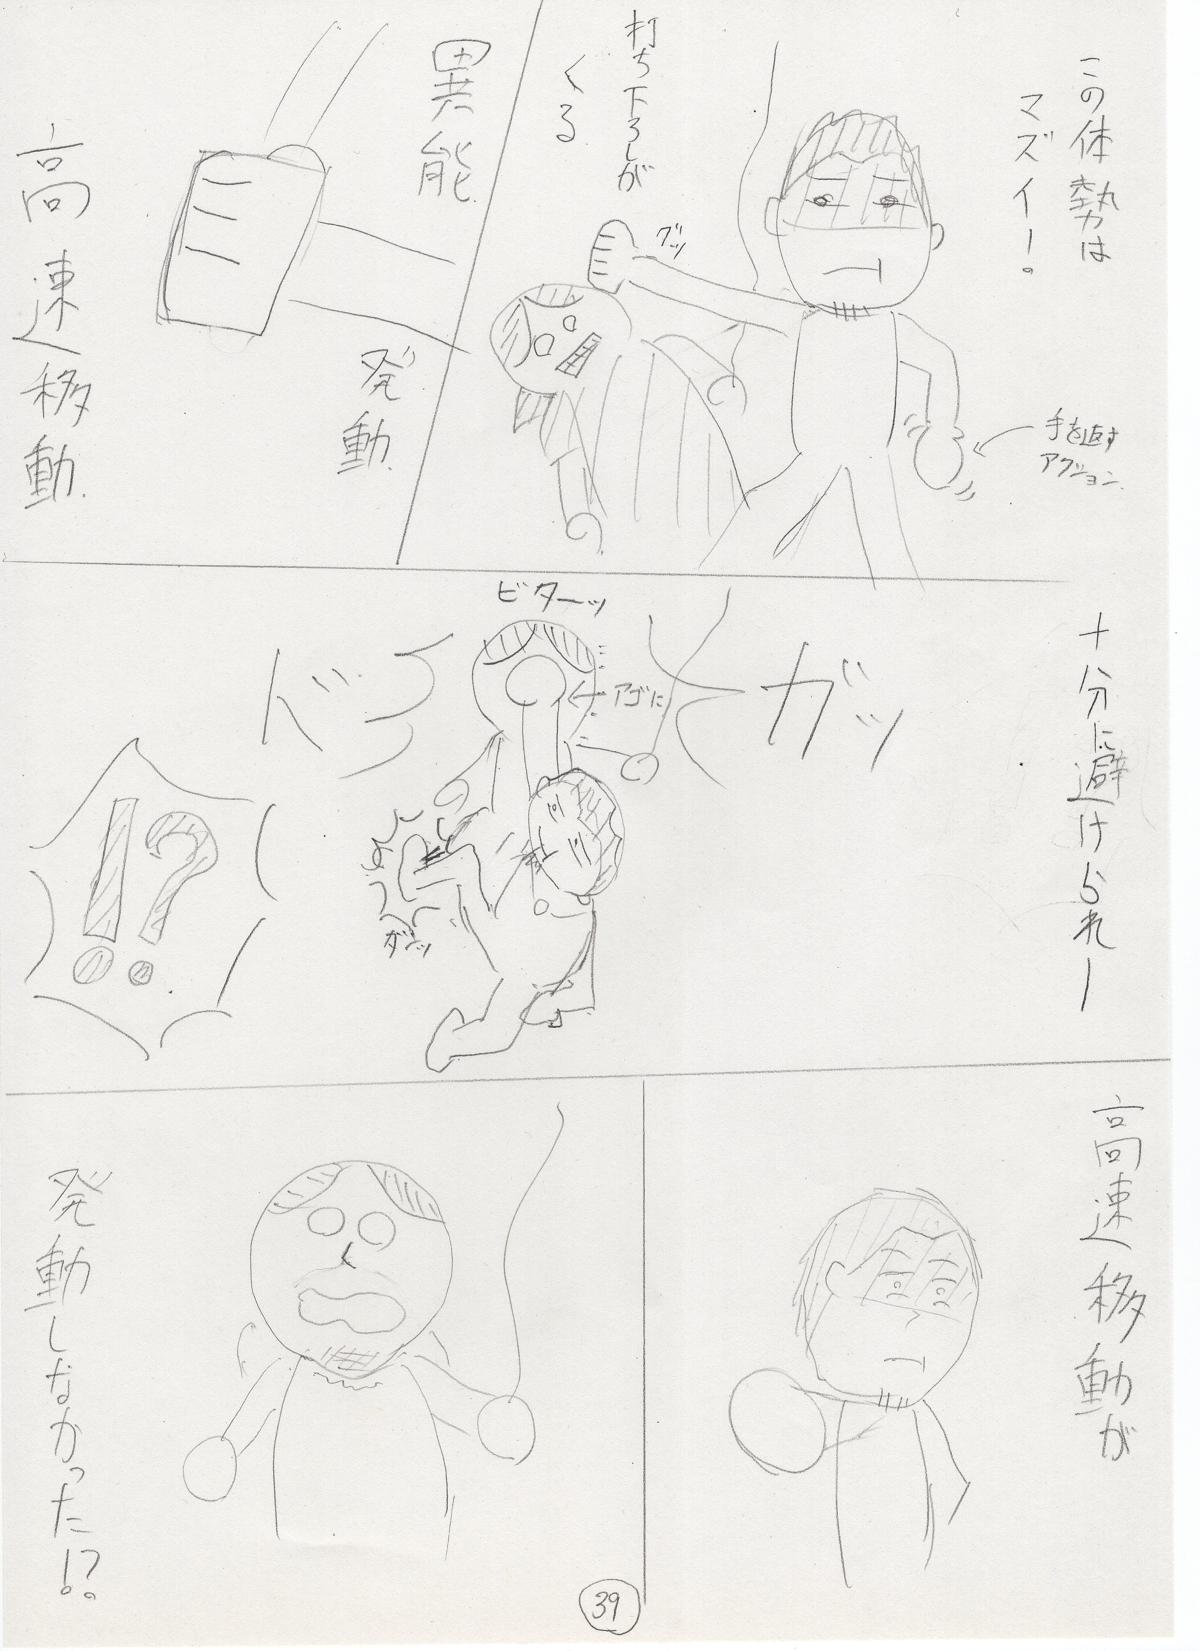 この体勢は
マズイー。
打ち下ろしが
くる
グッ
手を返す
アクション
異能
発動
高速移動
十分に避けられー
ガッ
ビターッ
アゴに
ガッ
ドッ
!?
高速移動が
発動しなかった!?
39